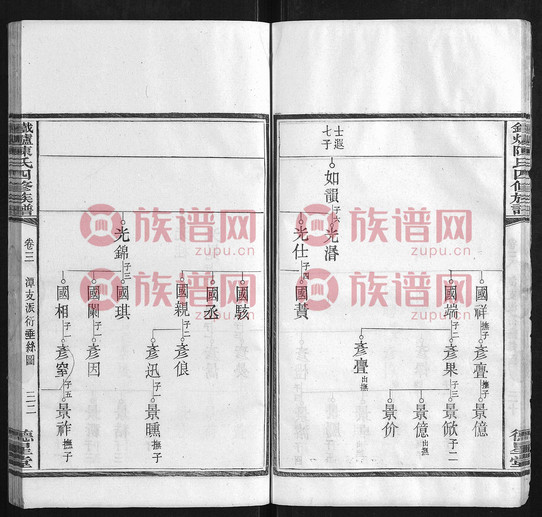 士遐
七子
如韻 子六
光濳
光仕 子四
國祥 撫子
國瑞 子二
國蕡
彥亹 撫子
彥果 子三
彥亹 出撫
景億
景歘 子二
景億 出撫
景价
光錦 子三
國駭
國丞
國親 子二
國琪
國闌 子一
國相 子一
彥俍
彥迅 子一
彥因
彥窒 子五
景曛 撫子
景祚 撫子
鐵爐陳氏四修族譜
卷三
潭支派衍垂絲圖
三二
德星堂
族谱网
zupu.cn
族谱网
zupu.cn
族谱网
族谱网